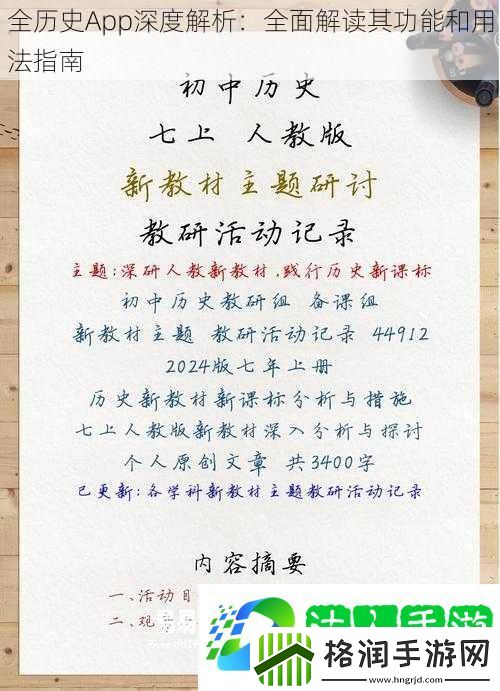 全历史App深度解析：全面解读其功能和用
法指南
初中历史
七上 人教版
新教材主题研讨
教研活动记录
主题:深研人教新教材,践行历史新课标
初中历史教研组 备课组
新教材主题 教研活动记录 44912
2024版七年上册
历史新教材新课标分析与措施
七上人教版新教材深入分析与探讨
个人原创文章 共3400字
已更新:各学科新教材主题教研活动记录
内容摘要
一、活动目
二、观
格润手游网
www.hngrjd.com